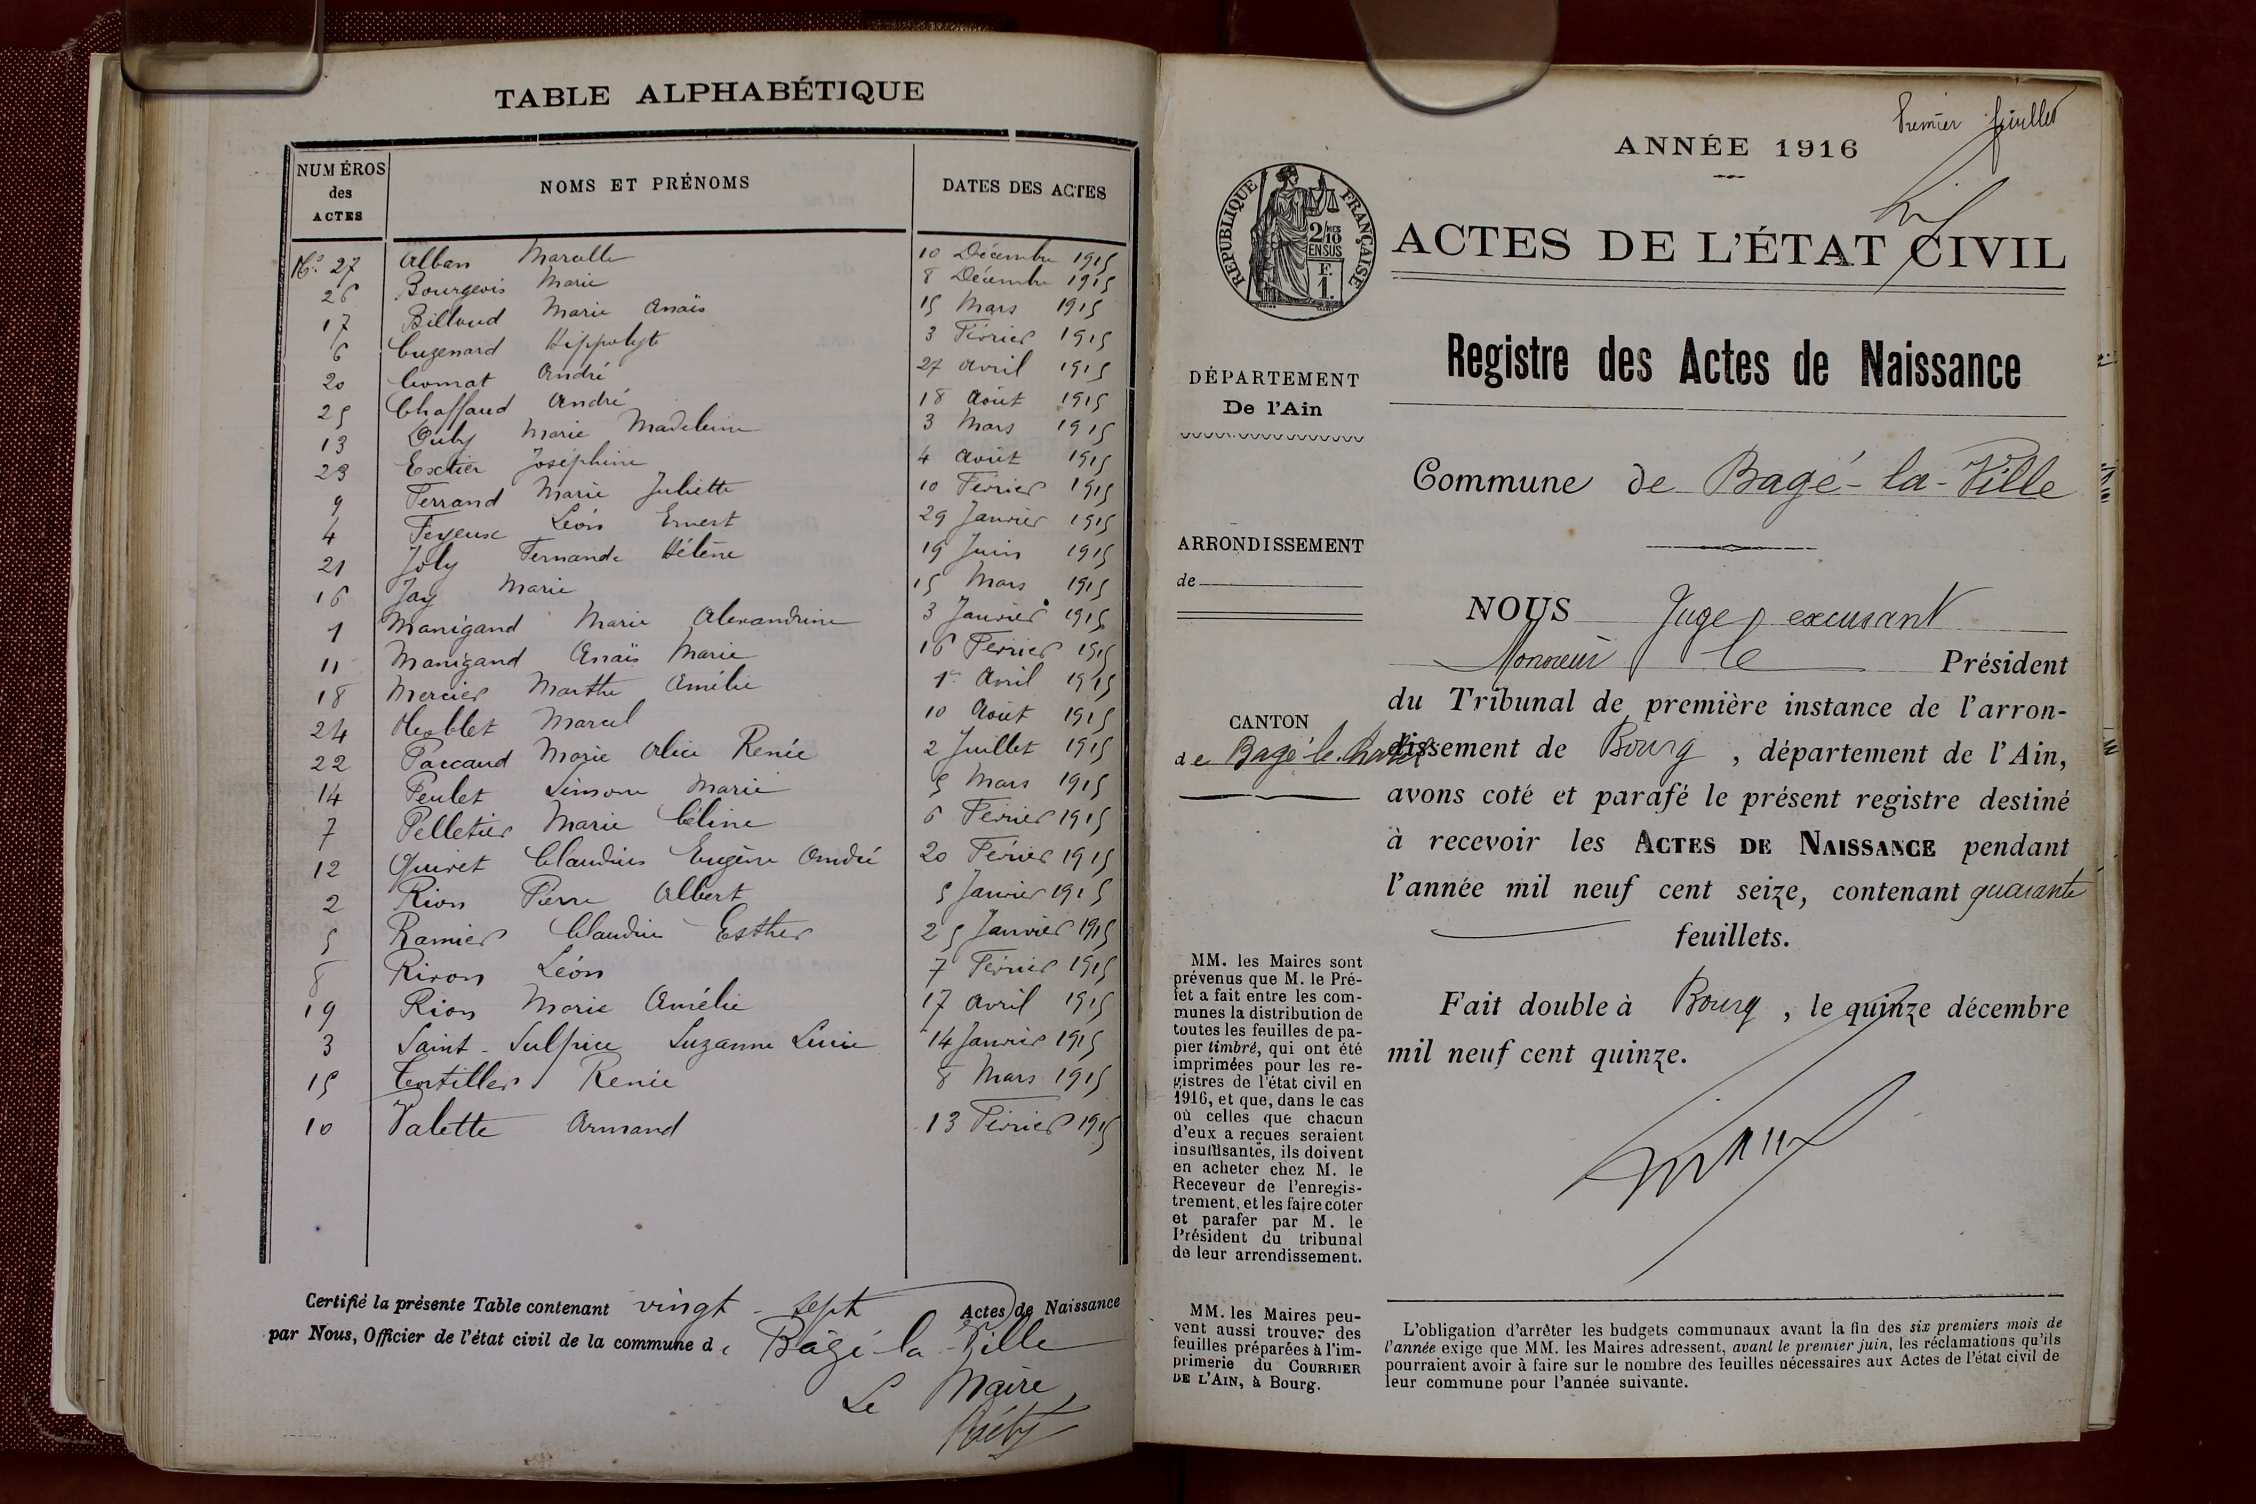 TABLE ALPHABÉTIQUE
NUMÉROS des ACTES NOMS ET PRÉNOMS DATES DES ACTES
No. 27 Alban Marcelle 10 Décembre 1915
26 Bourgeois Marie 8 Décembre 1915
17 Billoud Marie Anaïs 15 Mars 1915
6 Cugenard Hippolyte 3 Février 1915
20 Comat André 27 Avril 1915
25 Chaffaud André 18 Août 1915
13 Duby Marie Madeleine 3 Mars 1915
23 Extier Joséphine 4 Août 1915
9 Ferrand Marie Juliette 10 Février 1915
4 Feyeux Léon Ernest 29 Janvier 1915
21 Joly Fernande Hélène 19 Juin 1915
16 Jay Marie 15 Mars 1915
1 Manigand Marie Alexandrine 3 Janvier 1915
11 Manigand Anaïs Marie 16 Février 1915
18 Mercier Marthe Amélie 1er Avril 1915
24 Marcel 10 Août 1915
22 Paccaud Marie Alice Renée 2 Juillet 1915
14 Peulet Simone Marie 5 Mars 1915
7 Pelletier Marie Céline 6 Février 1915
12 Quivet Claudius Eugène André 20 Février 1915
2 Rion Pierre Albert 5 Janvier 1915
5 Ramier Claudine Esther 25 Janvier 1915
8 Rivon Léon 7 Février 1915
19 Rion Marie Amélie 17 Avril 1915
3 Saint-Sulpice Suzanne Lucie 14 Janvier 1915
15 Tortiller Renée 8 Mars 1915
10 Valette Armand 13 Février 1915
Certifié la présente Table contenant vingt-sept Actes de Naissance
par Nous, Officier de l'état civil de la commune de Bâgé-la-Ville
Le Maire,
Premier feuillet
ANNÉE 1916
RÉPUBLIQUE FRANÇAISE
2/10 MES
EN SUS
F.
1.
ACTES DE L'ÉTAT CIVIL
Registre des Actes de Naissance
DÉPARTEMENT
De l'Ain
Commune de Bagé-la-Ville
ARRONDISSEMENT
de
CANTON
de Bagé-le-Châtel
NOUS Juge excusant
Monsieur le Président
du Tribunal de première instance de l'arron-
dissement de Bourg, département de l'Ain,
avons coté et parafé le présent registre destiné
à recevoir les ACTES DE NAISSANCE pendant
l'année mil neuf cent seize, contenant quarante
feuillets.
Fait double à Bourg, le quinze décembre
mil neuf cent quinze.
MM. les Maires sont
prévenus que M. le Pré-
fet a fait entre les com-
munes la distribution de
toutes les feuilles de pa-
pier timbré, qui ont été
imprimées pour les re-
gistres de l'état civil en
1916, et que, dans le cas
où celles que chacun
d'eux a reçues seraient
insuffisantes, ils doivent
en acheter chez M. le
Receveur de l'enregis-
trement, et les faire coter
et parafer par M. le
Président du tribunal
de leur arrondissement.
MM. les Maires peu-
vent aussi trouver des
feuilles préparées à l'im-
primerie du COURRIER
DE L'AIN, à Bourg.
L'obligation d'arrêter les budgets communaux avant la fin des six premiers mois de
l'année exige que MM. les Maires adressent, avant le premier juin, les réclamations qu'ils
pourraient avoir à faire sur le nombre des feuilles nécessaires aux Actes de l'état civil de
leur commune pour l'année suivante.